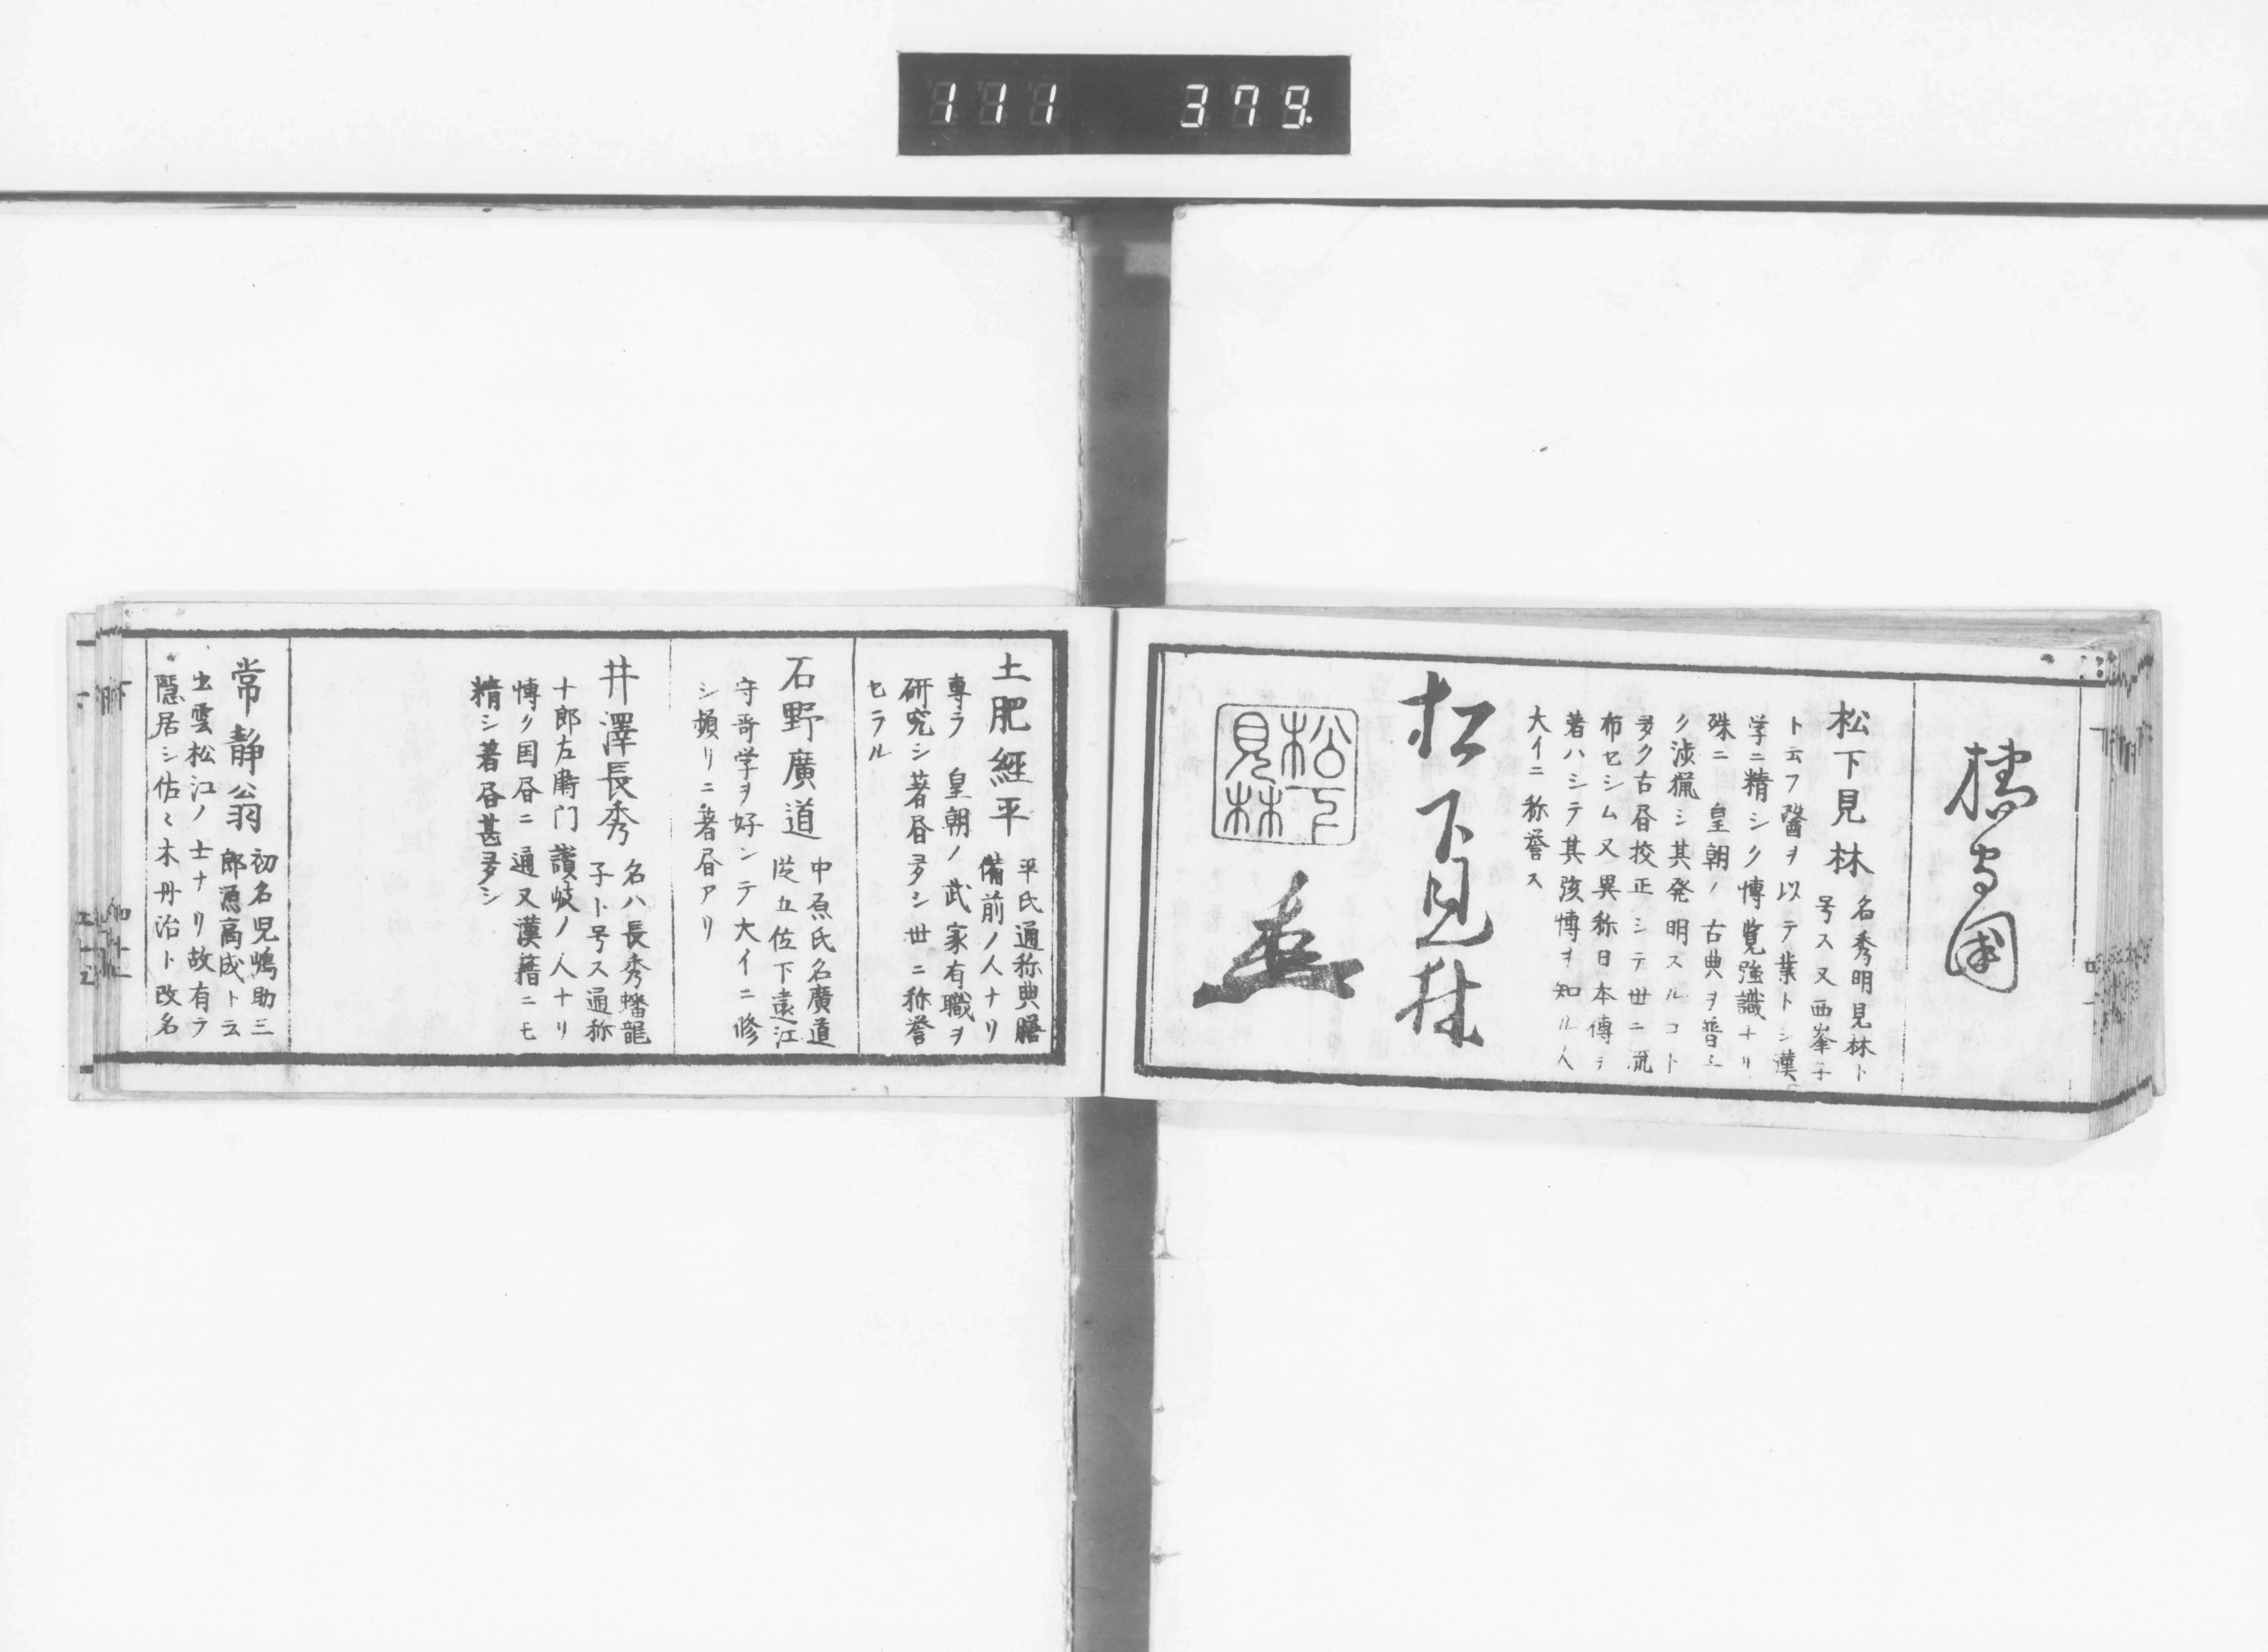 111 379.
松下見林
名秀明見林ト
号ス又西峯子
ト云フ醫ヲ以テ業トシ漢
学ニ精シク博覧強識ナリ
殊ニ 皇朝ノ古典ヲ普ネ
ク渉猟シ其発明スルコト
多ク古昼挍正シテ世ニ流
布セシム又異称日本傳ヲ
著ハシテ其該博ヲ知ル人
大イニ称誉ス
松下見林
松下
見林
土肥經平
平氏通称典膳
備前ノ人ナリ
専ラ 皇朝ノ武家有職ヲ
研究シ著昼多シ世ニ称誉
セラル
石野廣道
中原氏名廣道
従五佐下遠江
守哥学ヲ好ンテ大イニ修
シ頻リニ著昼アリ
井澤長秀
名ハ長秀蟠龍
子ト号ス通称
十郎左衛門讃岐ノ人ナリ
博ク国昼ニ通又漢籍ニモ
精シ著昼甚多シ
常静翁
初名児嶋助三
郎源高成ト云
出雲松江ノ士ナリ故有ラ
隠居シ佐々木丹治ト改名